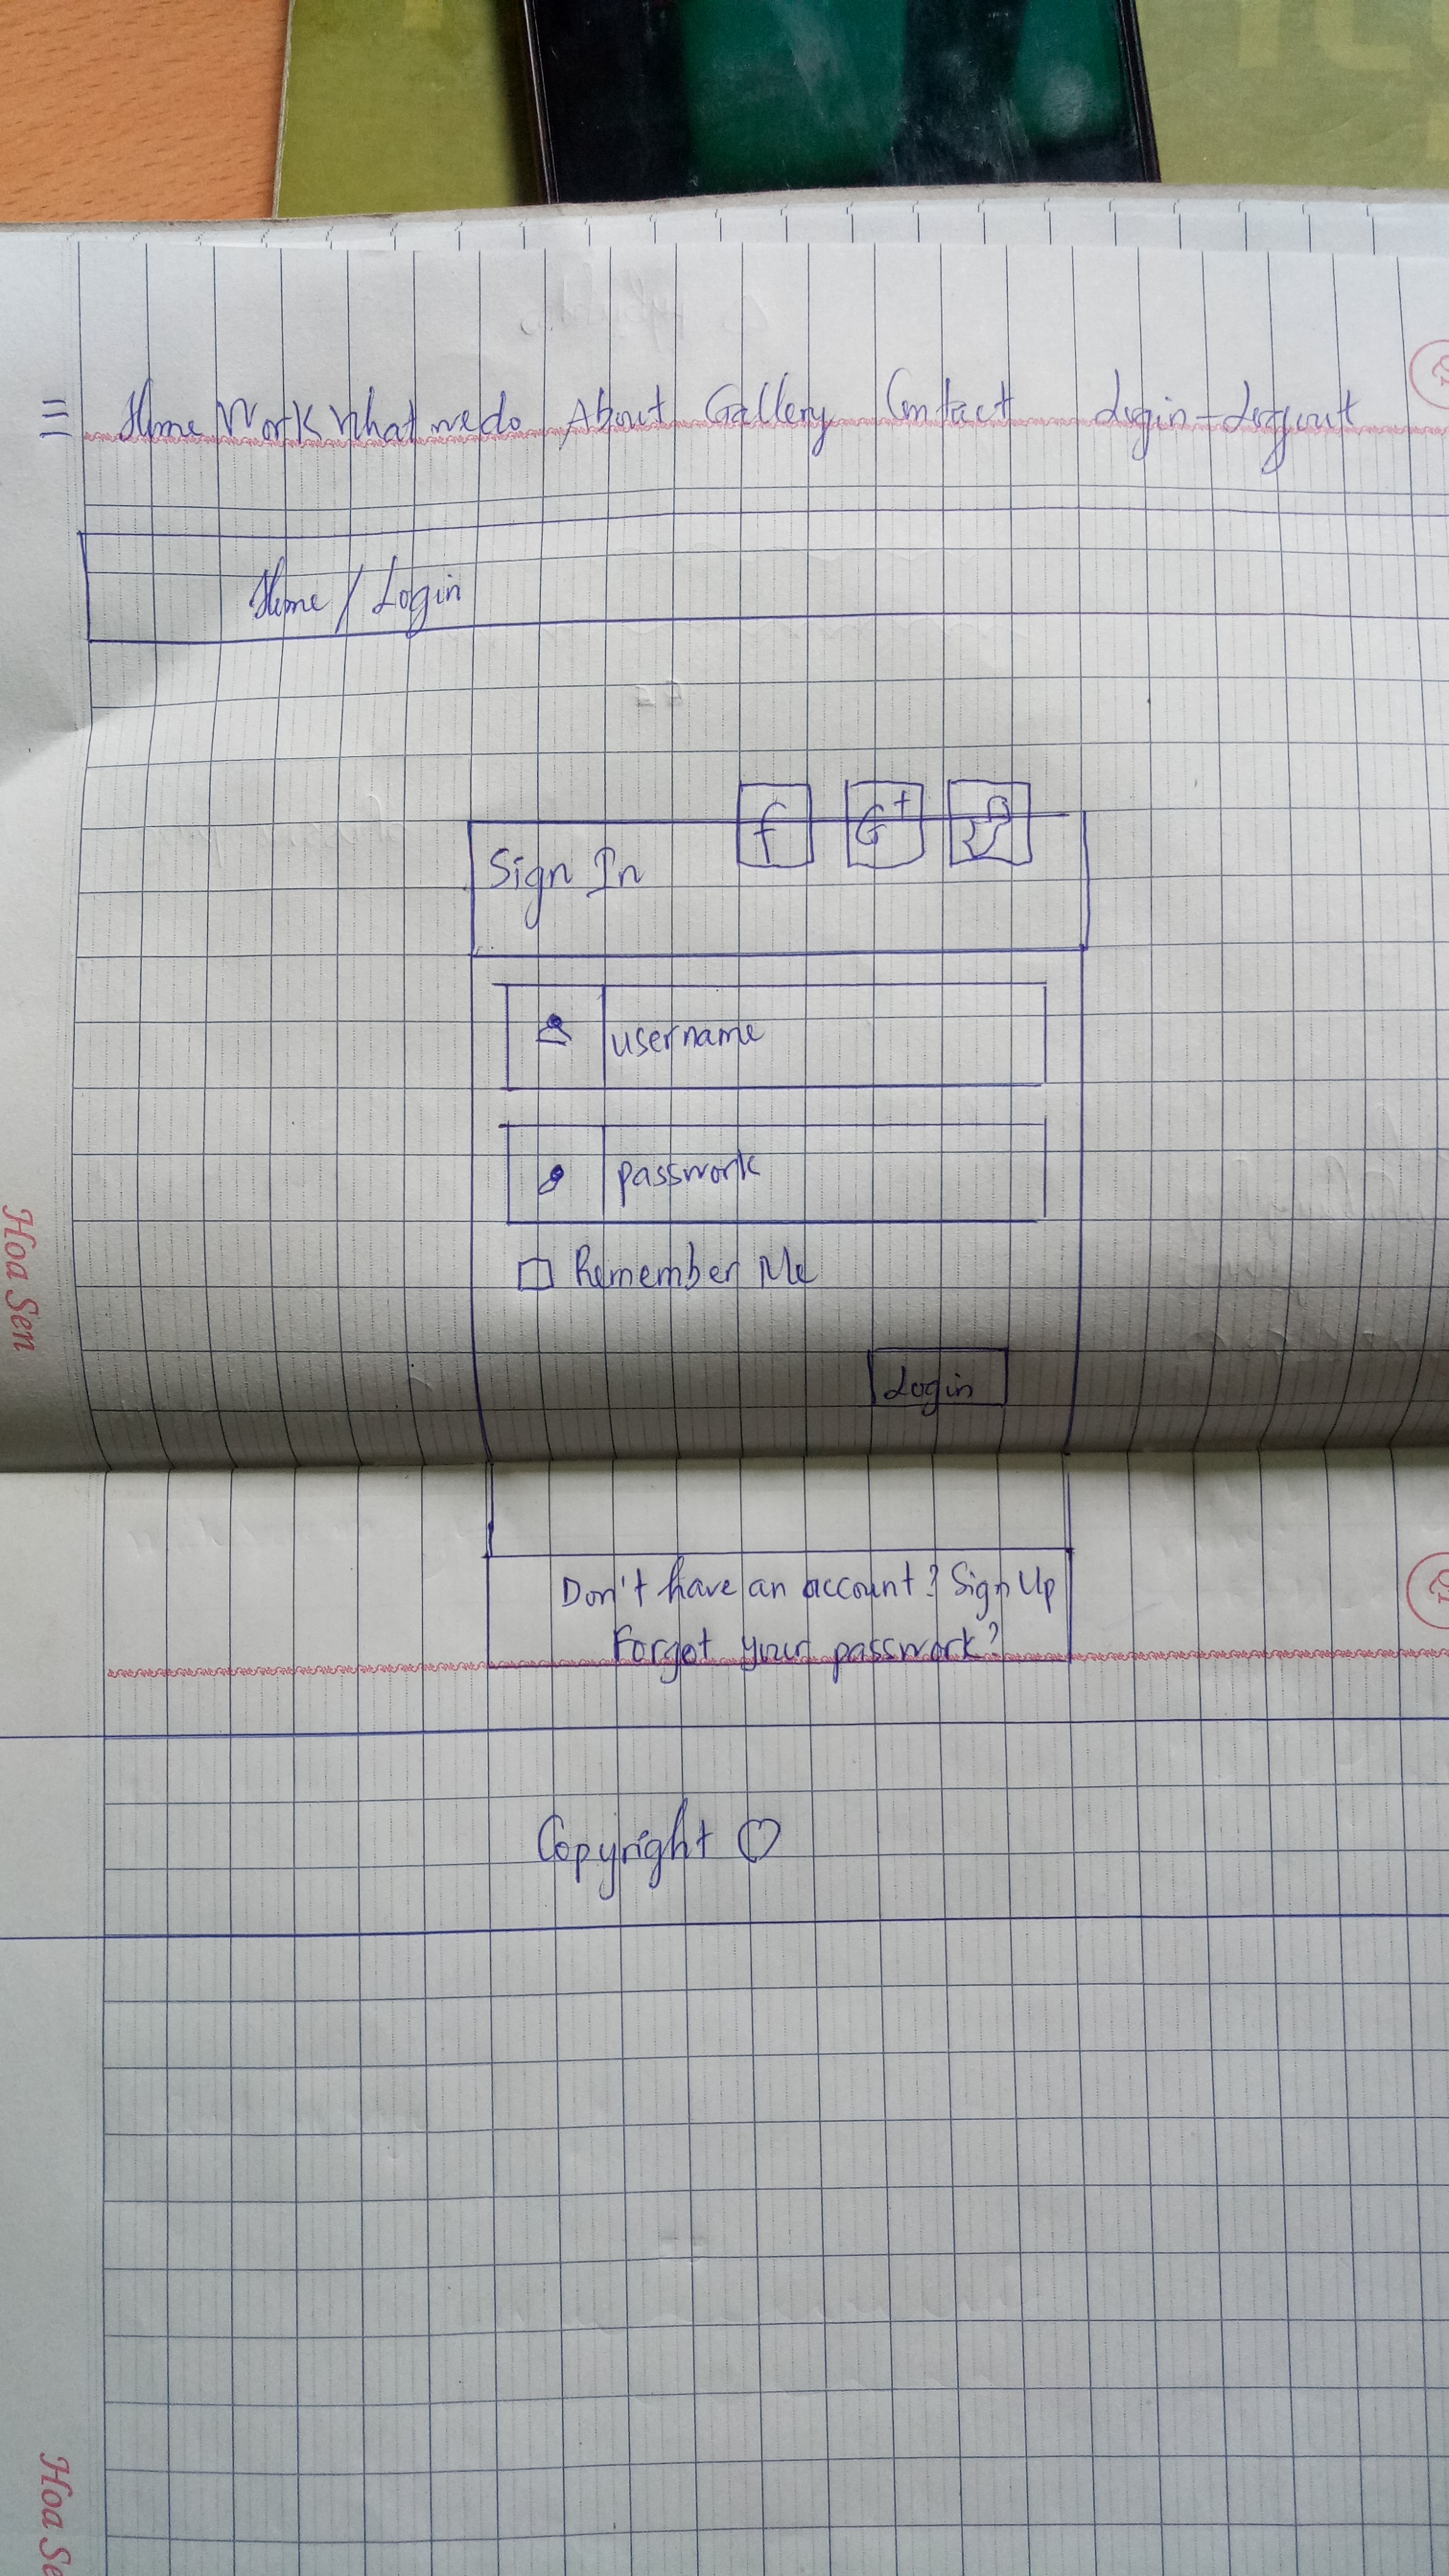 Home Work What we do About Gallery Contact Login - Logout
Home / Login
f G+
Sign In
username
passwork
Remember Me
Login
Don't have an account? Sign Up
Forgot your passwork?
Copyright ♡
Hoa Sen
Hoa Se